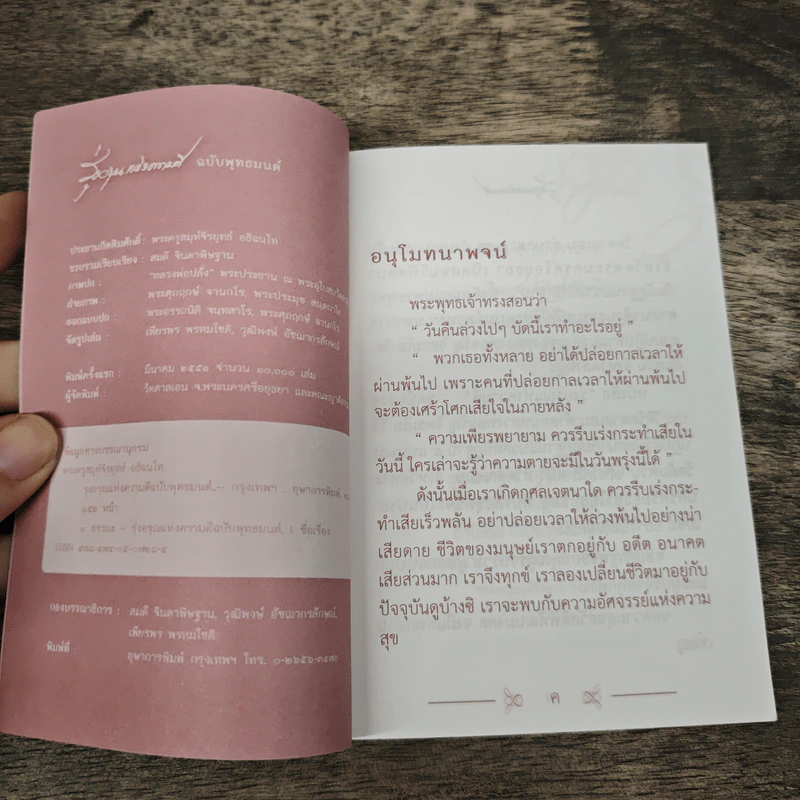 รุ่งอรุณแห่งความดี ฉบับพุทธมนต์
ประธานกิตติมศักดิ์ : พระครูสมุห์จิรยุทธ์ อธิฉนฺโท
รวบรวมเรียบเรียง : สมดี จินดาพิษฐาน
ภาพปก : "หลวงพ่อปลั่ง" พระประธาน ณ พระอุโบสถ
ถ่ายภาพ : พระศุภฤกษ์ จานภโร, พระประมุข
ออกแบบปก : พระอรรถนิติ พระศุภฤกษ์ จานภโร
จัดรูปเล่ม : เพียรพร พรหมโชติ, วุฒิพงษ์ อัชฌากรลักษณ์
พิมพ์ครั้งแรก : มีนาคม ๒๕๕๑ จำนวน ๑๐,๐๐๐ เล่ม
ผู้จัดพิมพ์ : วัดตาลเอน จ.พระนครศรีอยุธยา และคณะ
ข้อมูลทางบรรณานุกรม
พระครูสมุห์จิรยุทธ์ อธิฉนฺโท
รุ่งอรุณแห่งความดีฉบับพุทธมนต์.-- กรุงเทพฯ : อุษาการพิมพ์,
๑๕๒ หน้า
๑. ธรรมะ - รุ่งอรุณแห่งความดีฉบับพุทธมนต์, I. ชื่อเรื่อง
กองบรรณาธิการ : สมดี จินดาพิษฐาน, วุฒิพงษ์ อัชฌากรลักษณ์,
เพียรพร พรหมโชติ
พิมพ์ที่ : อุษาการพิมพ์ กรุงเทพฯ โทร. ๐-๒๒๕๑-๓๔๗๐
อนุโมทนาพจน์
พระพุทธเจ้าทรงสอนว่า
“ วันคืนล่วงไปๆ บัดนี้เราทำอะไรอยู่ ”
“ พวกเธอทั้งหลาย อย่าได้ปล่อยกาลเวลาให้
ผ่านพ้นไป เพราะคนที่ปล่อยกาลเวลาให้ผ่านพ้นไป
จะต้องเศร้าโศกเสียใจในภายหลัง ”
“ ความเพียรพยายาม ควรรีบเร่งกระทำเสียใน
วันนี้ ใครเล่าจะรู้ว่าความตายจะมีในวันพรุ่งนี้ได้ ”
ดังนั้นเมื่อเราเกิดกุศลเจตนาใด ควรรีบเร่งกระ-
ทำเสียเร็วพลัน อย่าปล่อยเวลาให้ล่วงพ้นไปอย่างน่า
เสียดาย ชีวิตของมนุษย์เราตกอยู่กับ อดีต อนาคต
เสียส่วนมาก เราจึงทุกข์ เราลองเปลี่ยนชีวิตมาอยู่กับ
ปัจจุบันดูบ้างซิ เราจะพบกับความอัศจรรย์แห่งความ
สุข
ค